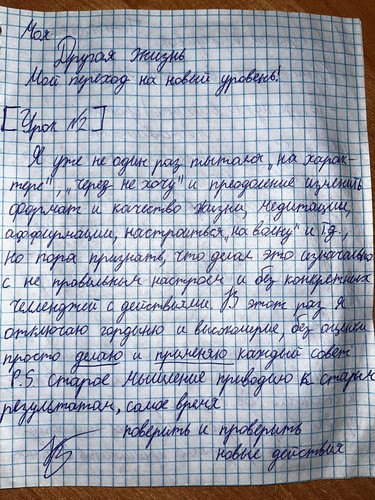 Моя
Другая жизнь
Мой переход на новый уровень!
[Урок №2]
Я уже не один раз пытала „на харак-
тере", „через не хочу" и преодоление изменить
формат и качество жизни, медитации,
аффирмации, настроиться „на волну" и т.д.,
но пора признать, что делал это изначально
с не правильным настроем и без конкретных
челленджей с действиями. В этот раз я
отключаю гордыню и высокомерие, без оценки
просто делаю и применяю каждый совет
P.S. Старое мышление приводило к старым
результатам, самое время
поверить и проверить
новые действия